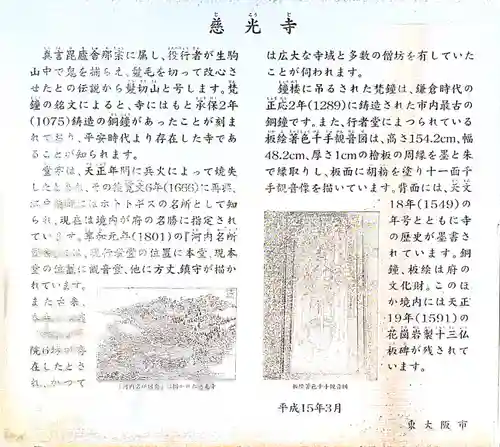 慈光寺
真言毘盧舎那宗に属し、役行者が生駒
山中で鬼を捕らえ、髪毛を切って改心さ
せたとの伝説から髪切山と号します。梵
鐘の銘文によると、寺にはもと承保2年
(1075)鋳造の銅鐘があったことが刻ま
れており、平安時代より存在した寺であ
ることが知られます。
堂宇は、天正年間に兵火によって焼失
したとされ、その後寛文6年(1666)に再興、
江戸時代にはホトトギスの名所として知
られ、現在は境内が府の名勝に指定され
ています。享和元年(1801)の『河内名所
図会』には、現行者堂の位置に本堂、現本
堂の位置に観音堂、他に方丈、鎮守が描か
れています。
また古来、
院16坊が存
在したとさ
れ、かつて
は広大な寺域と多数の僧坊を有していた
ことが伺われます。
鐘楼に吊るされた梵鐘は、鎌倉時代の
正応2年(1289)に鋳造された市内最古の
銅鐘です。また、行者堂にまつられている
板絵著色千手観音図は、高さ154.2cm、幅
48.2cm、厚さ1cmの桧板の周縁を墨と朱
で縁取りし、板面に胡粉を塗り十一面千
手観音像を描いています。背面には、天文
18年(1549)の
年号とともに寺
の歴史が墨書さ
れています。銅
鐘、板絵は府の
文化財。このほ
か境内には天正
19年(1591)の
花崗岩製十三仏
板碑が残されて
います。
『河内名所図会』に描かれた慈光寺
板絵著色千手観音図
平成15年3月
東大阪市